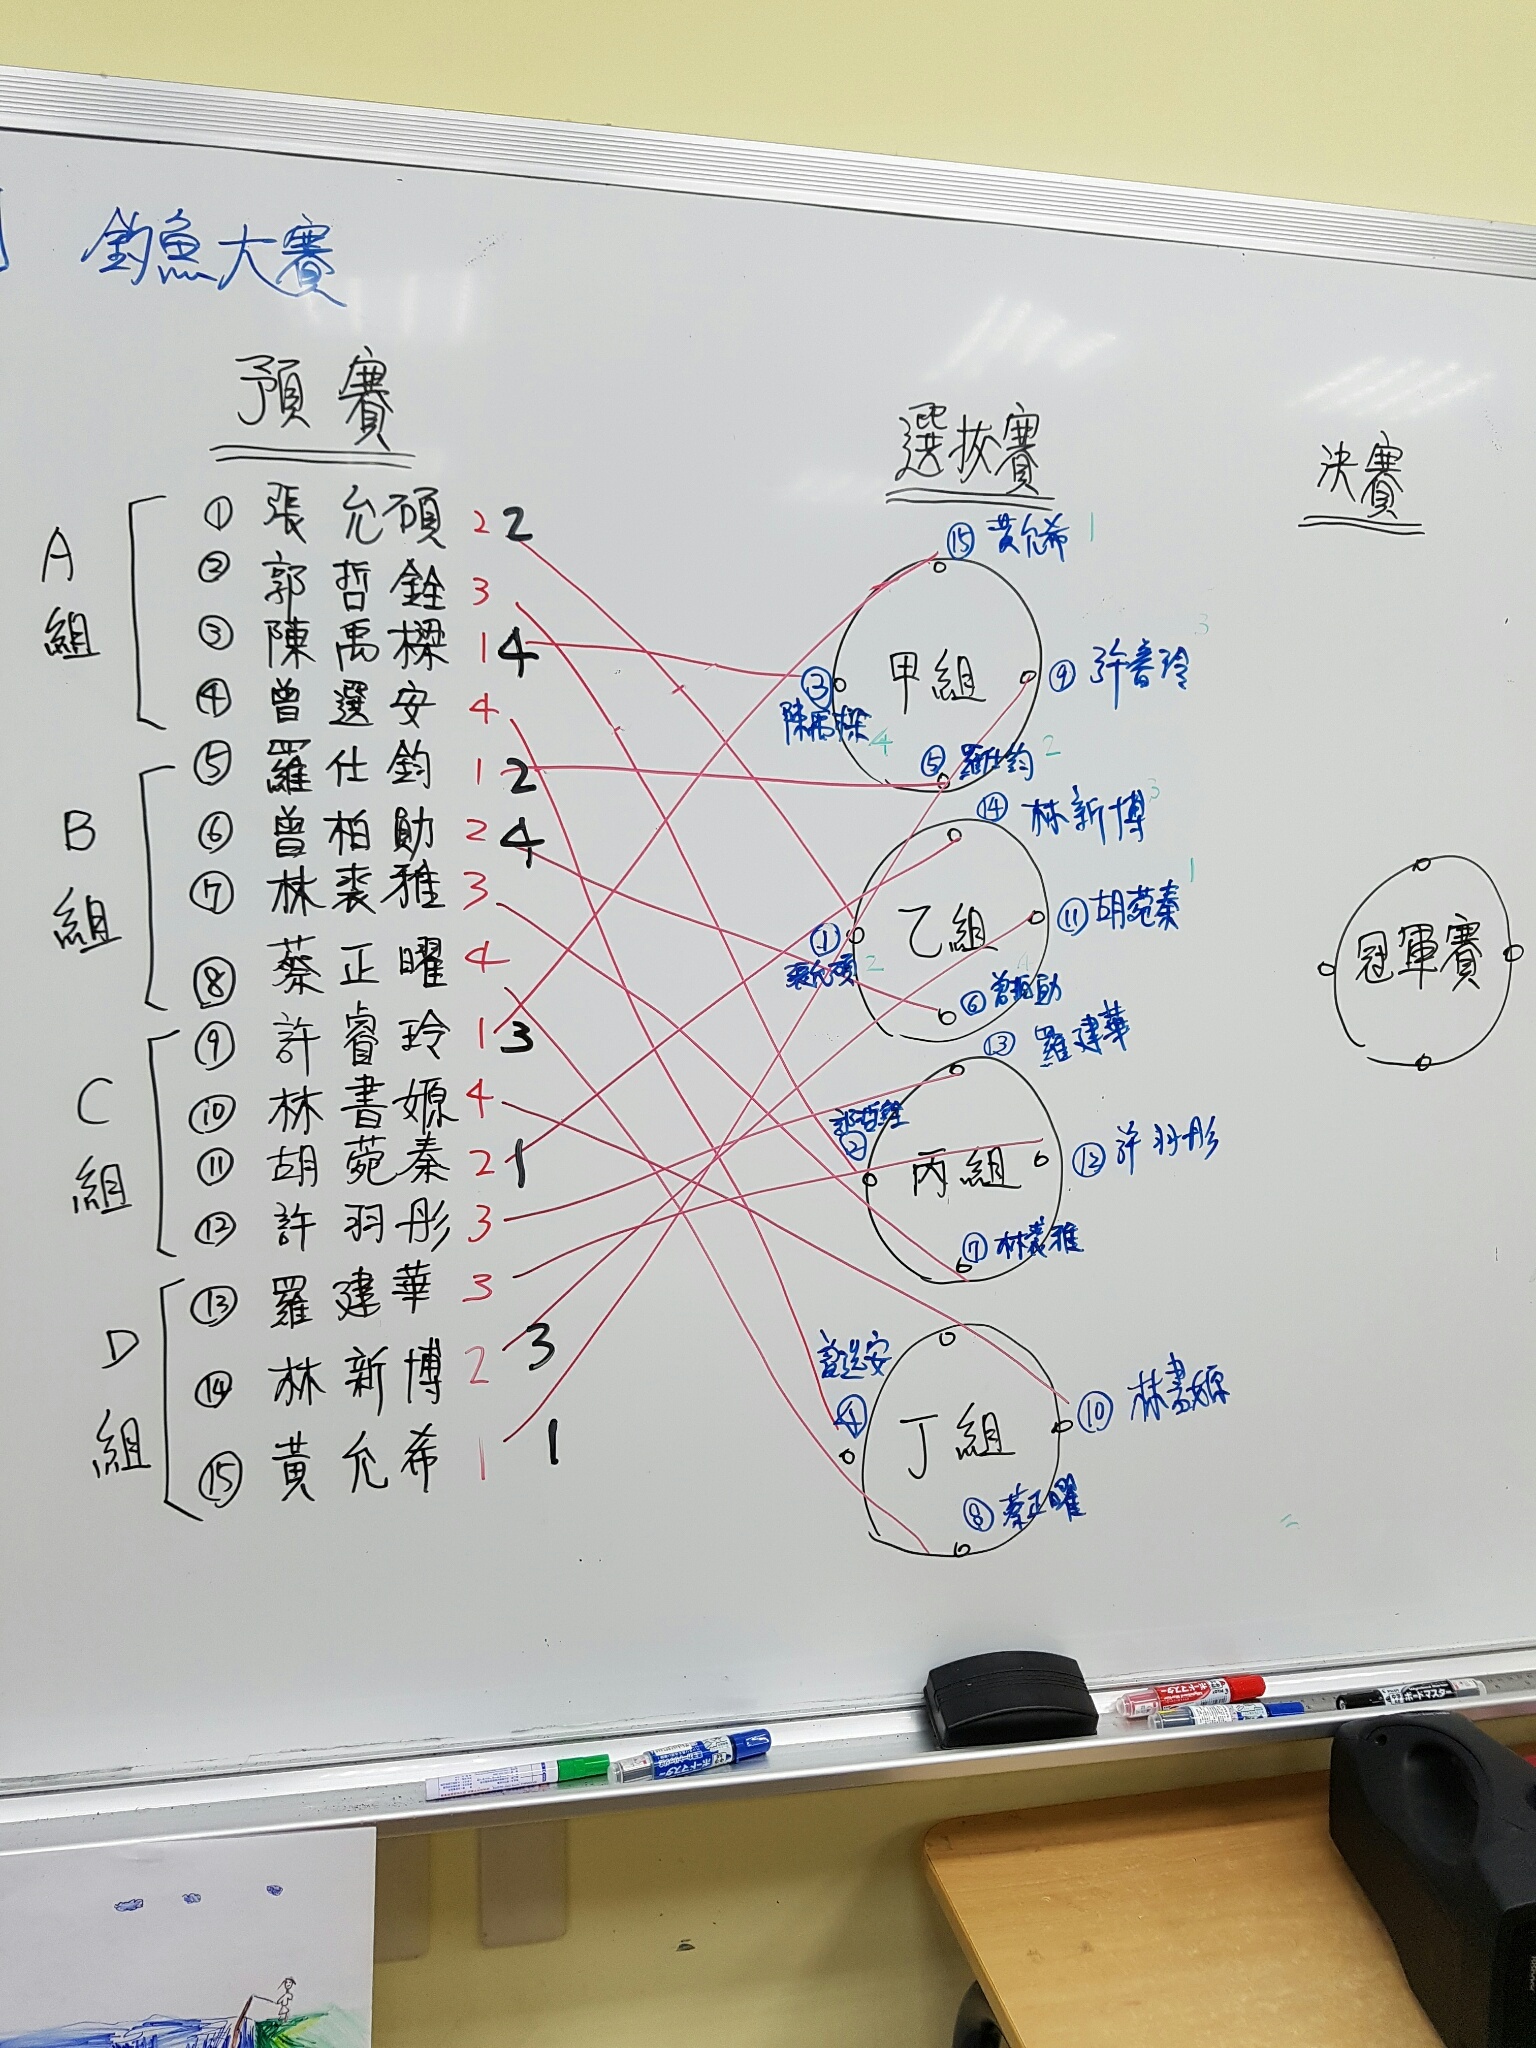 釣魚大賽
預賽
A組
① 張允碩 2 2
② 郭哲銓 3
③ 陳禹樑 1 4
④ 曾選安 4
B組
⑤ 羅仕鈞 1 2
⑥ 曾柏勛 2 4
⑦ 林裘雅 3
⑧ 蔡正曜 4
C組
⑨ 許睿玲 1 3
⑩ 林書嫄 4
⑪ 胡菀秦 2 1
⑫ 許羽彤 3
D組
⑬ 羅建華 3
⑭ 林新博 2 3
⑮ 黃允希 1 1
選拔賽
⑮ 黃允希 1
甲組
⑨ 許睿玲 3
③ 陳禹樑 4
⑤ 羅仕鈞 2
⑭ 林新博 3
乙組
⑪ 胡菀秦 1
① 張允碩 2
⑥ 曾柏勛 4
⑬ 羅建華
郭哲銓
②
丙組
⑫ 許羽彤
⑦ 林裘雅
曾选安
④
丁組
⑩ 林書嫄
⑧ 蔡正曜
決賽
冠軍賽